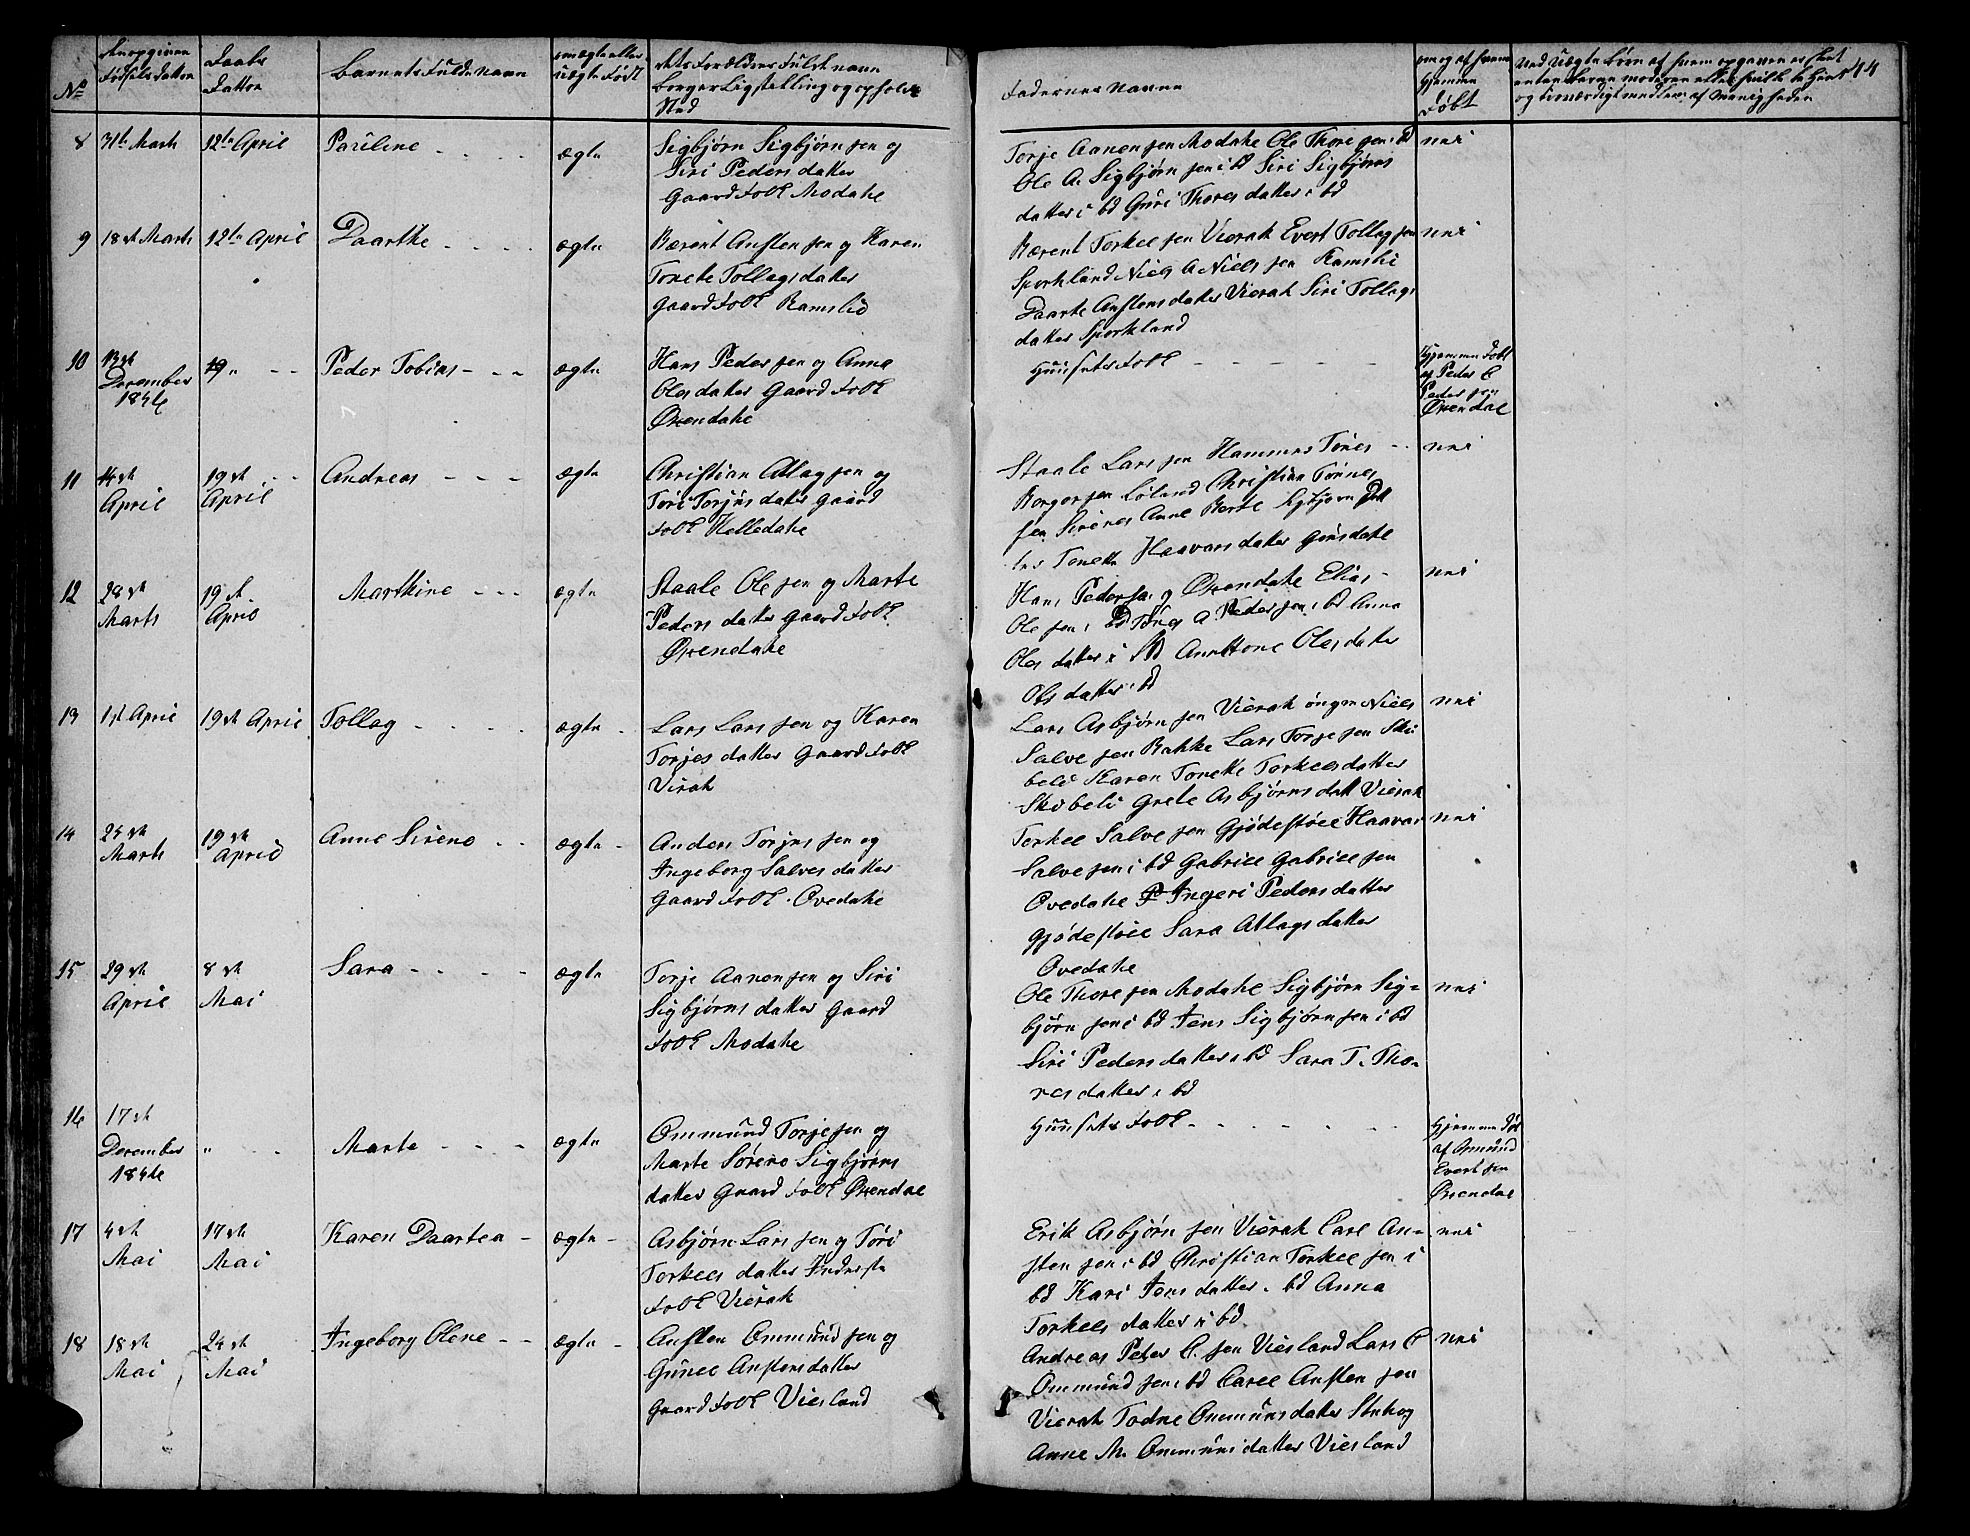 No
Daabs
Datton
Barnets Fulde navn
Fadernes navne
Døbt
8 31te Marts 12te April Pauline - - - - ægte Sigbjørn Sigbjørnsen og
Siri Pedersdatter
Gaardfolk Modahe
Torje Aanensen Modahe Ole Thoresen i bd
Ole A. Sigbjørnsen i bd Siri Sigbjørns
datter i bd Guri Thoresdatter i bd
nei
9 18de Marts 12te April Daarthe - - - - ægte Berent Anstensen og Karen
Tonete Tollagsdatter
Gaardfolk Ramslid
Berent Torkelsen Vierak Evert Tollagsen
Sporkland Niels A Nielsen Ramsli
Daarte Anstensdatter Vierak Siri Tollags
datter Sporkland
nei
10 13de
December
1846
Peder Tobias - - - ægte Hans Pedersen og Anna
Olesdatter Gaardfolk
Øxendahe
Huusets Folk - - - -
Hjemme Døbt
af Peder
Pedersen
Øxendal
11 14de
April
19de
April
Andreas - - - ægte Christian Atlagsen og
Tori Torjusdatter Gaard
folk Helledahe
Staale Larsen Hammer Tønes - -
Borgersen Løland Christian Tønnes
sen Sirenes Anne Berte Sigbjørn
Tonette Haavarsdatter Guusdahe
nei
12 28de
Marts
19de
April
Marthine - - - ægte Staale Olesen og Marte
Pedersdatter Gaardfolk
Øxendahe
Hans Pedersen Øxendahe Elias -
Olesen i bd Tønes A Pedersen i bd Anna
Olesdatter i bd Annettone Olesdatter
Olsdatter i bd
nei
13 1ste April 19de April Tollag - - - - ægte - Lars Larsen og Karen
Torjesdatter Gaardfolk
Virak
Lars Asbjørnsen Vierak Niels
Salvesen Bakke Lars Torjesen Ski
beli Karen Tonette Torkelsdatter
Skibeli Grete Asbjørnsdatt Vierak
nei
14 25de
Marts
19de
April
Anne Sirene - - ægte - Anders Torjusen og
Ingeborg Salvesdatter
Gaardfolk Ovedahe
Torkel Salvesen Gjødestøel Haavar
Salvesen i bd Gabriel Gabrielsen
Ovedahe P Ingeri Pedersdatter
Gjødestøel Sara Atlagsdatter
Ovedahe
nei
15 29de
April
8de
Mai
Sara - - - - ægte Torje Aanensen og Siri
Sigbjørnsdatter Gaard
folk Modahe
Ole Thoresen Modahe Sigbjørn Sig-
bjørnsen i bd Jens Sigbjørnsen i bd
Siri Pedersdatter i bd Sara T. Tho-
resdatter i bd
nei
16 17de
December
1846
" - - Marte - - - - ægte Ommund Torjesen og
Marte Sørene Sigbjørns
datter Gaardfolk Øxendal
Huusets Folk - - - - -
Hjemme Døbt
af Osmund
Evertsen
Øxendal
17 4de
Mai
17de
Mai
Karen Daartea - ægte - Asbjørn Larsen og Tori
Torkelsdatter Inderste
folk Vierak
Erik Asbjørnsen Vierak Carl An-
stensen i bd Christian Torkelsen i
bd Kari Jensdatter i bd Anna
Torkelsdatter i bd
nei
18 18de
Mai
24de
Mai
Ingeborg Olene - - ægte - Ansten Ommundsen og
Gunel Anstensdatter
Gaardfolk Viesland
Andreas Peder C. sen Viesland Lars C
Ommundsen i bd Carel Anstensen
Vierak Todne Ommunsdatter
Anne M. Ommunsdatter Viesland
nei